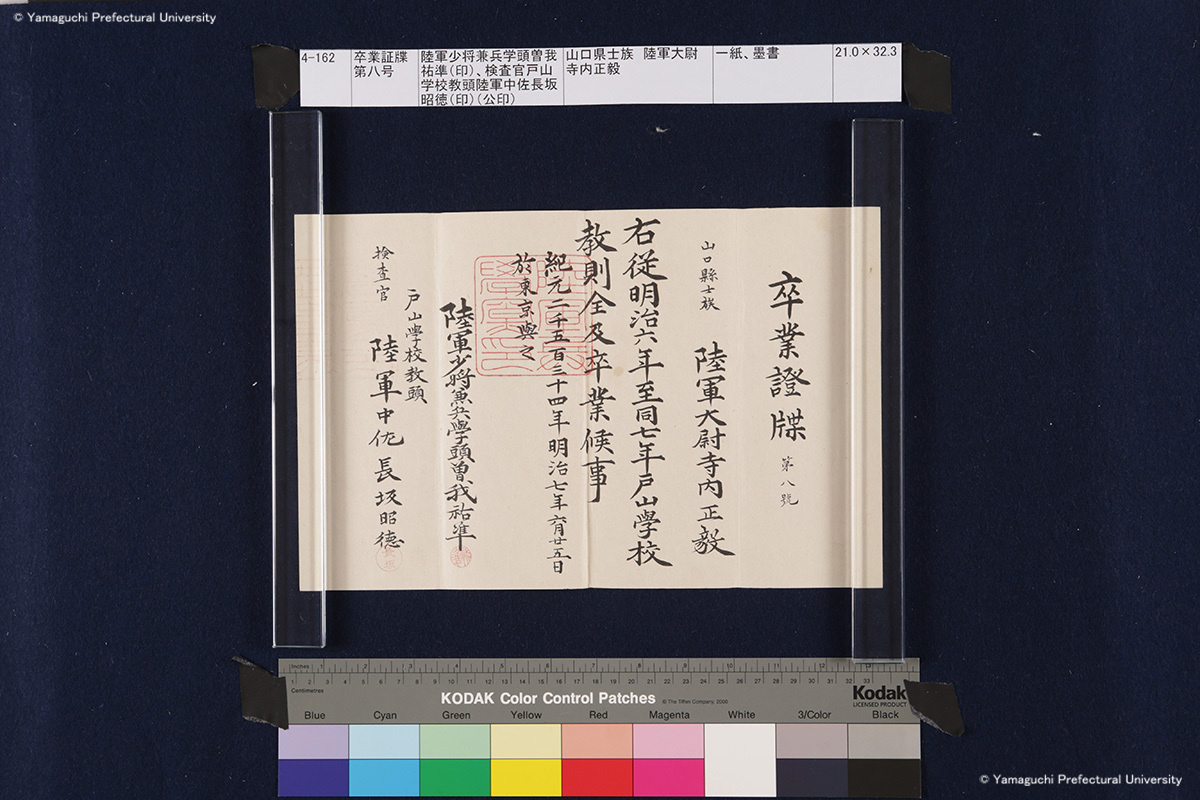 © Yamaguchi Prefectural University
4-162
卒業証牒
第八号
陸軍少将兼兵学頭曽我
祐準(印)、検査官戸山
学校教頭陸軍中佐長坂
昭徳(印)(公印)
山口県士族 陸軍大尉
寺内正毅
一紙、墨書
21.0×32.3
卒業證牒 第八號
山口縣士族 陸軍大尉寺内正毅
右従明治六年至同七年戸山學校
教則全及卒業候事
紀元二千五百三十四年明治七年六月廿五日
於東京與之
陸軍少将兼兵學頭曽我祐準
戸山學校教頭
検査官 陸軍中佐長坂昭徳
Inches 1 2 3 4 5 6 7 8 9 10 11 12 13
Centimetres 1 2 3 4 5 6 7 8 9 10 11 12 13 14 15 16 17 18 19 20 21 22 23 24 25 26 27 28 29 30 31 32 33
KODAK Color Control Patches © The Tiffen Company, 2000
Kodak
LICENSED PRODUCT
Blue Cyan Green Yellow Red Magenta White 3/Color Black
© Yamaguchi Prefectural University